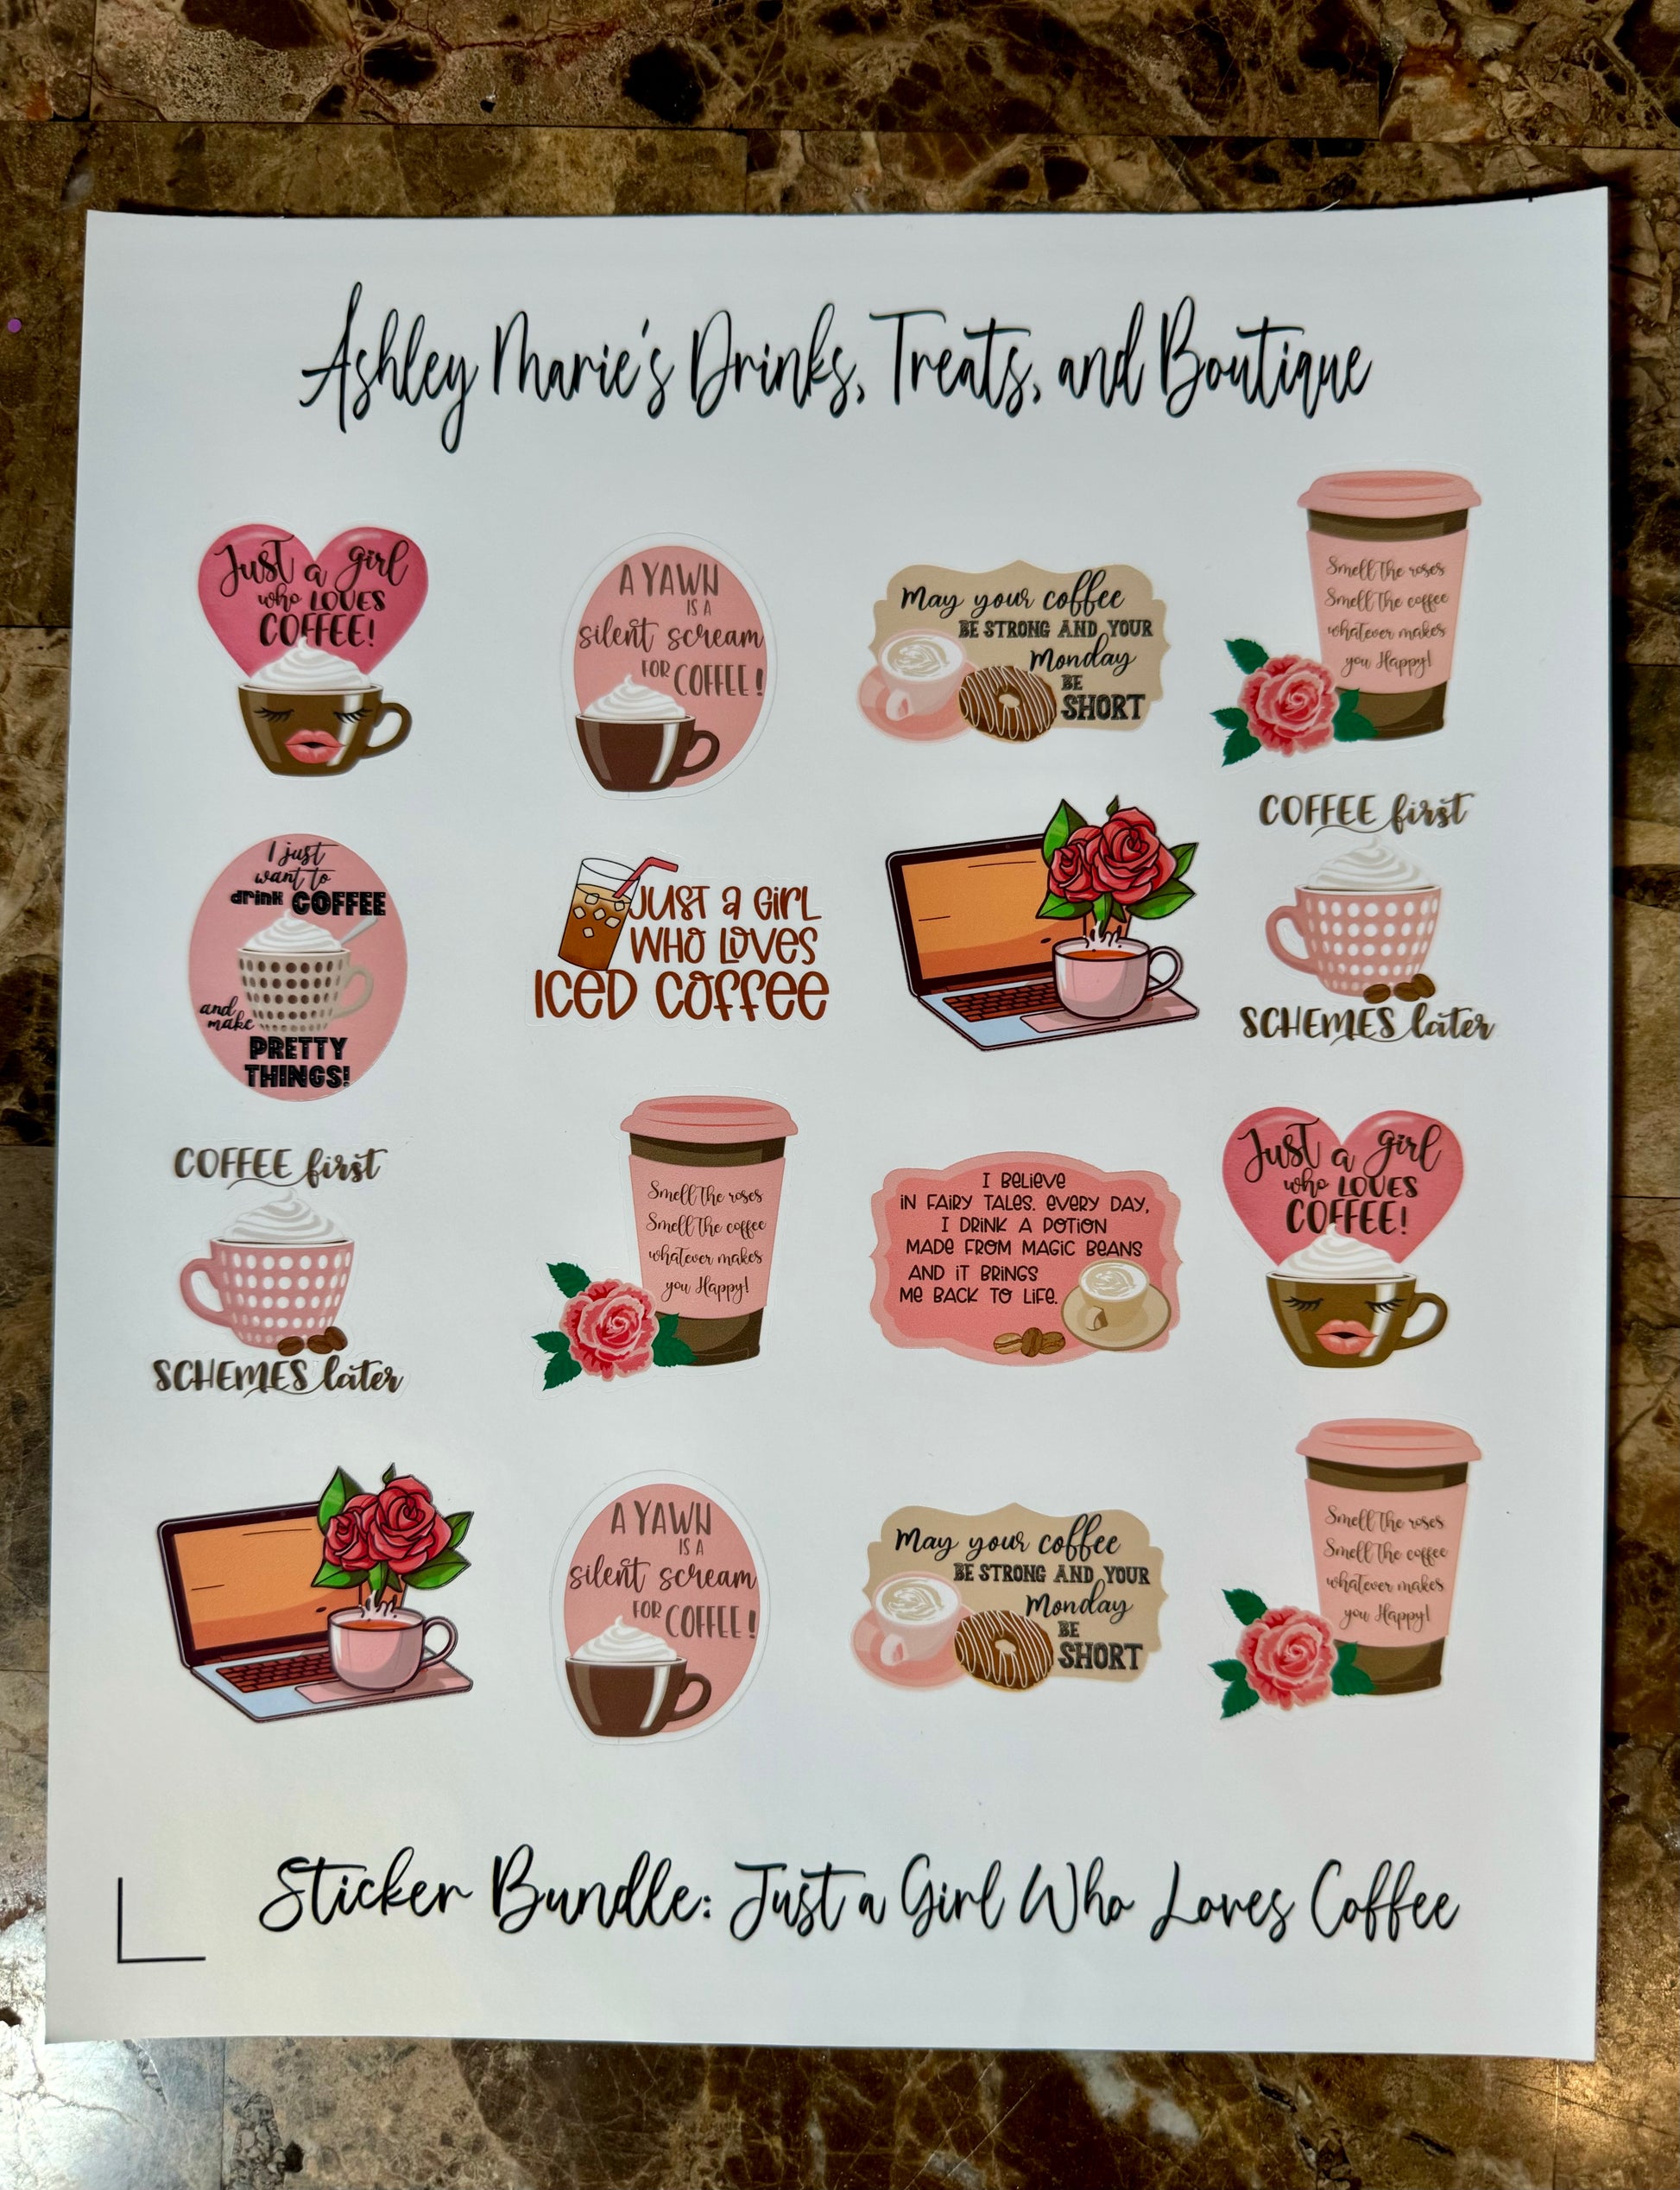 Ashley Marie's Drinks, Treats, and Boutique
Just a girl
who LOVES
COFFEE!
A YAWN
IS A
silent scream
FOR COFFEE!
May your coffee
BE STRONG AND YOUR
Monday
BE
SHORT
Smell the roses
Smell the coffee
whatever makes
you Happy!
I just
want to
drink COFFEE
and
make
PRETTY
THINGS!
JUST a GIRL
WHO LOVES
ICED COFFEE
COFFEE first
SCHEMES later
COFFEE first
SCHEMES later
Smell the roses
Smell the coffee
whatever makes
you Happy!
I BELIEVE
IN FAIRY TALES. EVERY DAY,
I DRINK A POTION
MADE FROM MAGIC BEANS
AND IT BRINGS
ME BACK TO LIFE.
Just a girl
who LOVES
COFFEE!
A YAWN
IS A
silent scream
FOR COFFEE!
May your coffee
BE STRONG AND YOUR
Monday
BE
SHORT
Smell the roses
Smell the coffee
whatever makes
you Happy!
Sticker Bundle: Just a Girl Who Loves Coffee